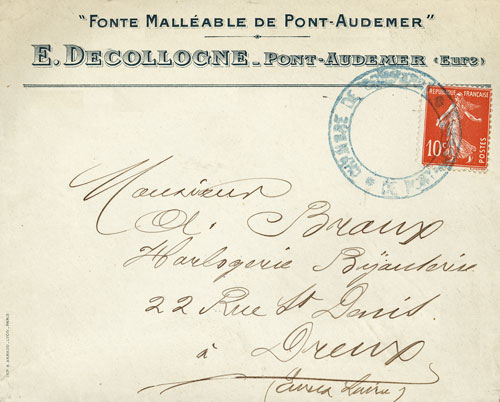 "FONTE MALLÉABLE DE PONT-AUDEMER"
E. DECOLLOGNE_PONT-AUDEMER (Eure)
CHAMBRE DE
DE PONT
REPUBLIQUE FRANÇAISE
10c
POSTES
Monsieur
Braux
Horlogerie Bijouterie
22 Rue St Denis.
à Dreux
(Eure & Loire)